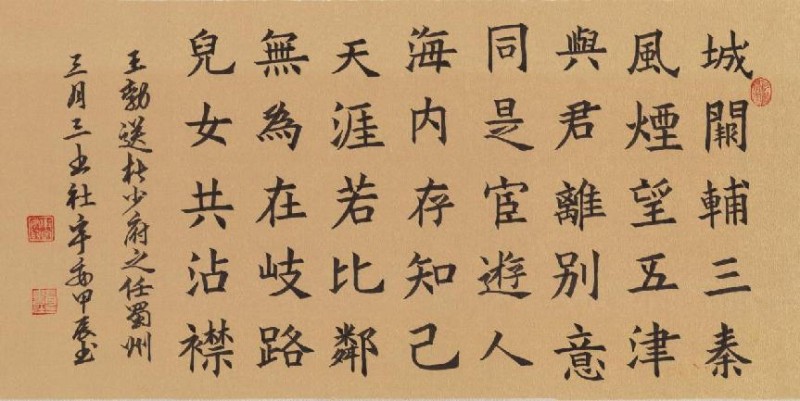 城闕輔三秦
風煙望五津
與君離别意
同是宦遊人
海内存知己
天涯若比鄰
無為在岐路
兒女共沾襟
王勃送杜少府之任蜀州
三月三书社甲辰书